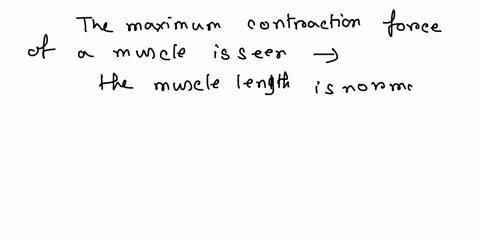 The maximum contraction force
of a muscle is seen →
the muscle length is norma